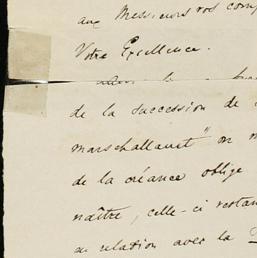 aux Messieurs vos
Votre Excellence.
de la succession de
marschallamt" on
de la créance oblige
naître, celle-ci
en relation avec la